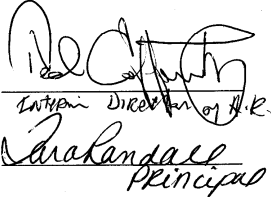 Interim Director of H.R.
Sara Randall
Principal